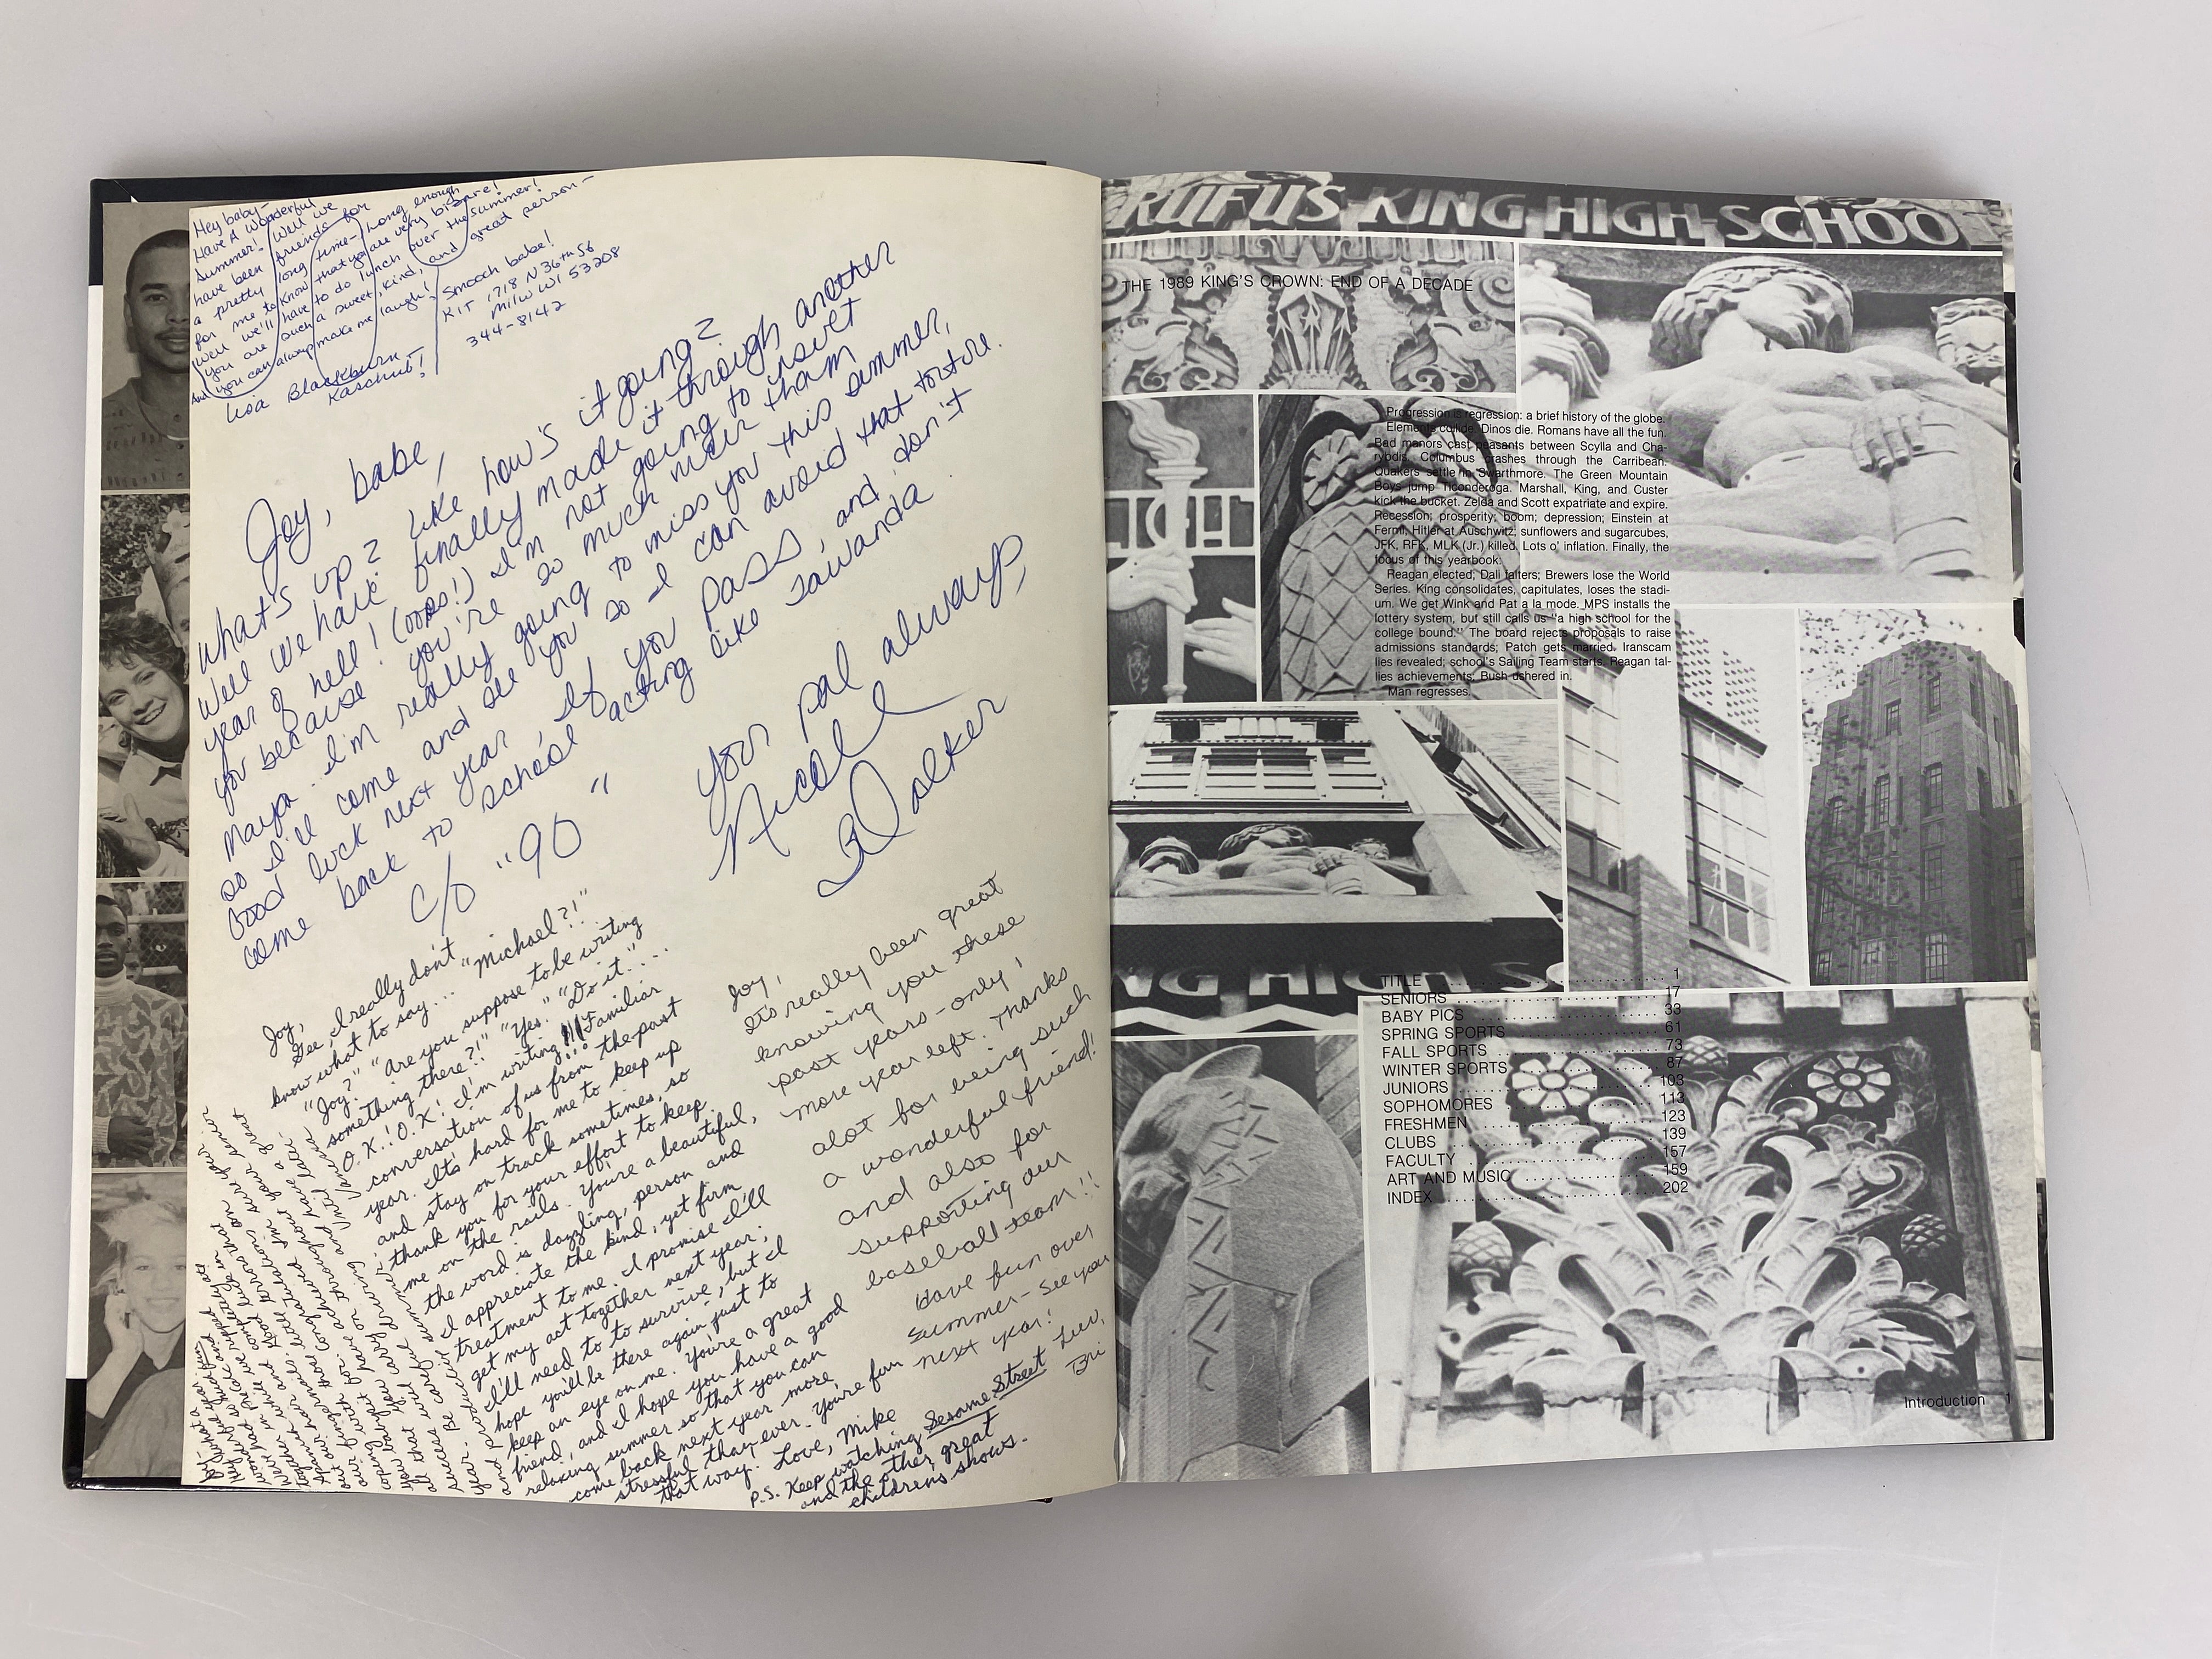 Hey baby-
Have A Wonderful
Summer! Well we
have been friends for
a pretty long time- Long enough
for me to know that you are very bizarre!
Well we'll have to do lunch over the summer!
you are such a sweet, kind, and great person-
And you can always make me laugh!
Smooch babe!
KIT 1718 N 36th St
Milw WI 53208
344-8142
Lisa Blackburn
Kaschut!
Joy, babe,
What's up? Like how's it going?
Well we have finally made it through another
year of hell! (oops!) I'm not going to insult
you because you're so much nicer than
Maya. I'm really going to miss you this summer,
so I'll come and see you so I can avoid that torture.
Good luck next year, if you pass, and don't
come back to school acting like Tawanda
c/o "90"
Your pal always,
Nicole
Walker
Joy,
Gee, I really don't
know what to say... "Michael?!"
"Joy?" "Are you suppose to be writing
something there?!" "Yes." "Do it."...
O.K.! O.K! I'm writing!!! Familiar
conversation of us from the past
year. It's hard for me to keep up
and stay on track sometimes, so
thank you for your effort to keep
me on the rails. You're a beautiful,
the word is dazzling, person and
I appreciate the kind, yet firm
treatment to me. I promise I'll
get my act together next year;
I'll need to to survive, but I
hope you'll be there again just to
keep an eye on me. You're a great
friend, and I hope you have a good
relaxing summer so that you can
come back next year more
stressful than ever. You're fun
that way. Love, Mike
P.S. Keep watching Sesame Street
and the other great
childrens shows.
Joy,
It's really been great
knowing you these
past years-only 1
more year left. Thanks
alot for being such
a wonderful friend!
and also for
supporting our
baseball team!!
Have fun over
summer- See you
next year!
Luv,
Bri
RUFUS KING HIGH SCHOO
THE 1989 KING'S CROWN: END OF A DECADE
Progression is regression: a brief history of the globe.
Elements collide. Dinos die. Romans have all the fun.
Bad manors cast peasants between Scylla and Cha-
rybdis. Columbus crashes through the Carribean.
Quakers settle in Swarthmore. The Green Mountain
Boys jump Ticonderoga. Marshall, King, and Custer
kick the bucket. Zelda and Scott expatriate and expire.
Recession; prosperity; boom; depression; Einstein at
Fermi, Hitler at Auschwitz; sunflowers and sugarcubes,
JFK, RFK, MLK (Jr.) killed. Lots o' inflation. Finally, the
focus of this yearbook.
Reagan elected, Dali falters; Brewers lose the World
Series. King consolidates, capitulates, loses the stadi-
um. We get Wink and Pat a la mode. MPS installs the
lottery system, but still calls us "a high school for the
college bound." The board rejects proposals to raise
admissions standards; Patch gets married. Iranscam
lies revealed; school's Sailing Team starts. Reagan tal-
lies achievements; Bush ushered in.
Man regresses.
NG HIGH SC
TITLE . . . . . 1
SENIORS . . . . . 17
BABY PICS . . . . . 33
SPRING SPORTS . . . . . 61
FALL SPORTS . . . . . 73
WINTER SPORTS . . . . . 87
JUNIORS . . . . . 103
SOPHOMORES . . . . . 113
FRESHMEN . . . . . 123
CLUBS . . . . . 139
FACULTY . . . . . 157
ART AND MUSIC . . . . . 159
INDEX . . . . . 202
Introduction 1